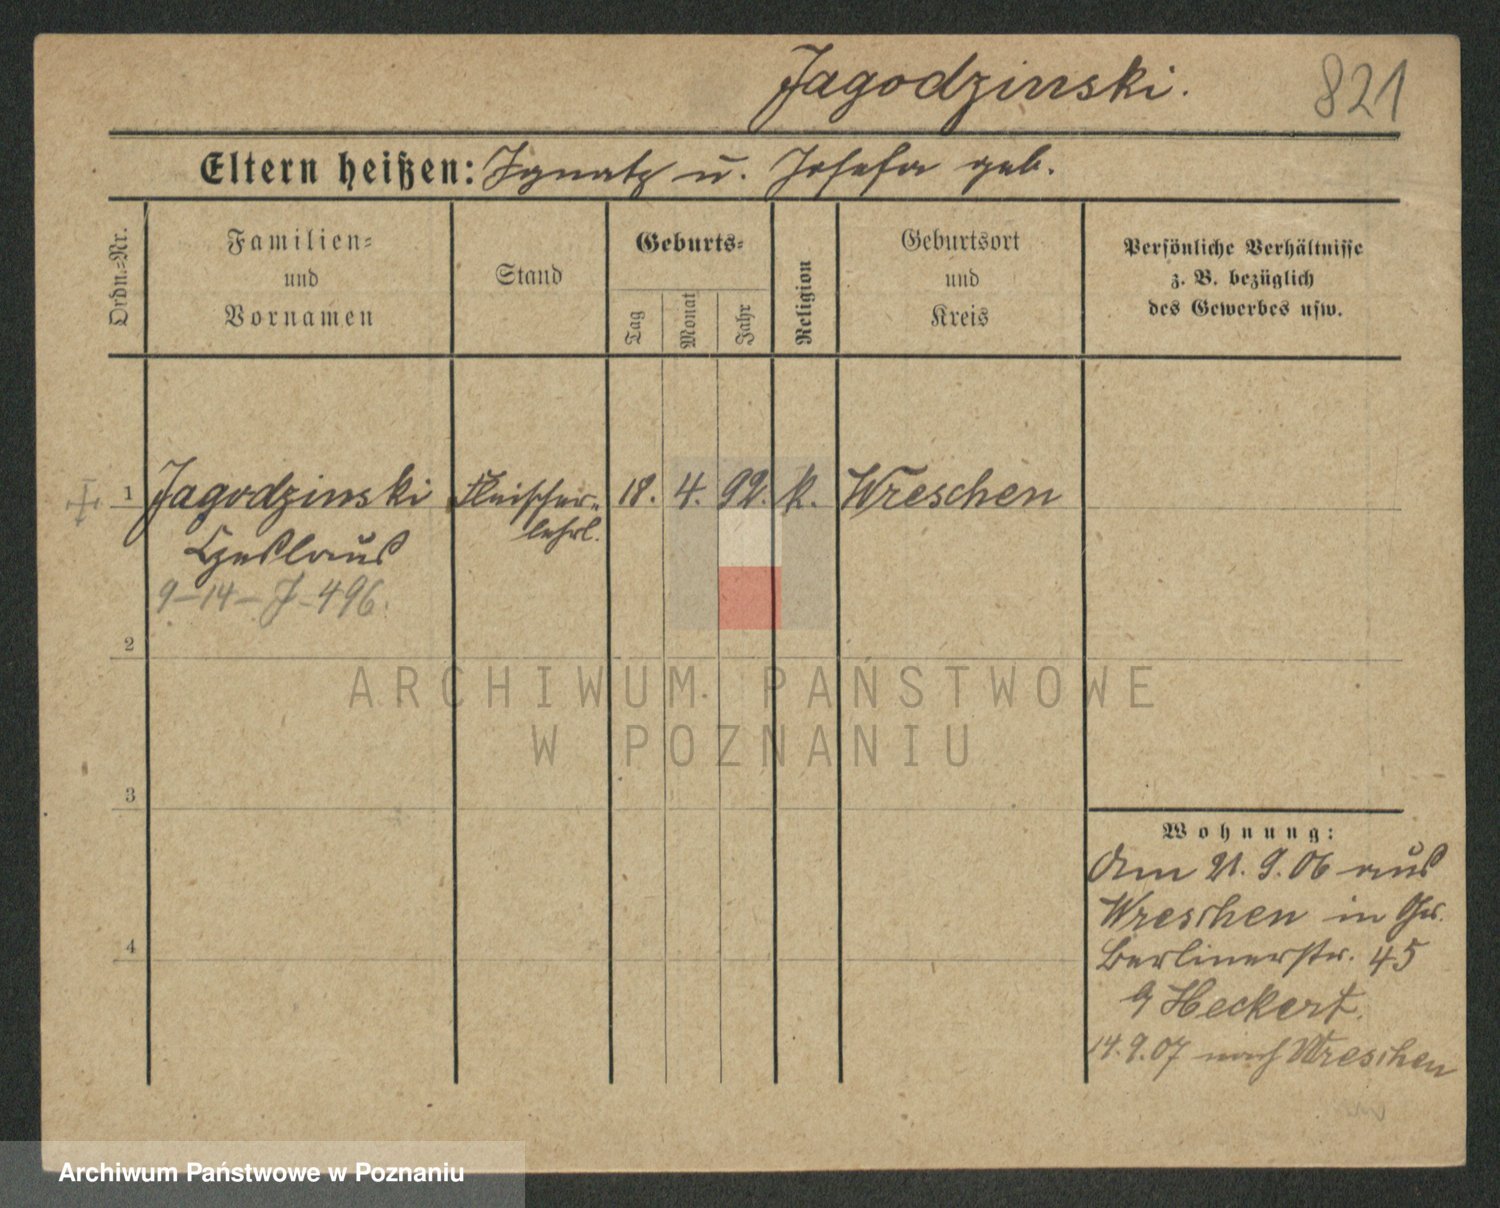 Jagodzinski.
821
Eltern heißen: Ignatz u. Josefa geb.
Ordn.-Nr.
Familien-
und
Vornamen
Stand
Geburts-
Tag
Monat
Jahr
Religion
Geburtsort
und
Kreis
Persönliche Verhältnisse
z. B. bezüglich
des Gewerbes usw.
1 Jagodzinski Fleischer- 18. 4. 92. k. Wreschen
lehrl.
Czeslaus
9-14-J-496.
2
3
4
Wohnung:
Am 21.9.06 aus
Wreschen in
Berlinerstr. 45
Heckert.
14.9.07 nach Wreschen
ARCHIWUM PAŃSTWOWE
W POZNANIU
Archiwum Państwowe w Poznaniu